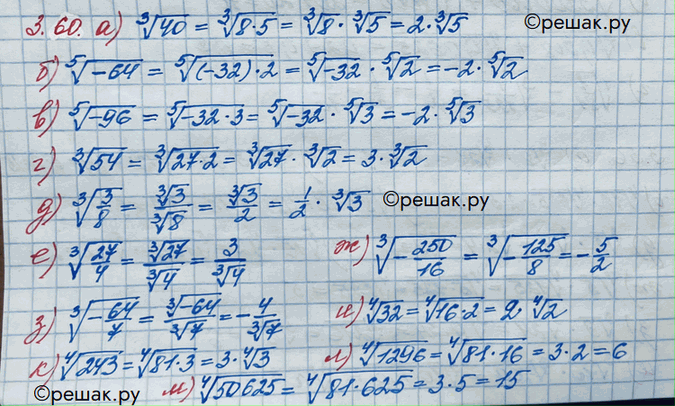 3.60. а) ∛40 = ∛(8·5) = ∛8 · ∛5 = 2·∛5 ©решак.ру
б) ⁵√(-64) = ⁵√((-32)·2) = ⁵√(-32) · ⁵√2 = -2·⁵√2
в) ⁵√(-96) = ⁵√(-32·3) = ⁵√(-32) · ⁵√3 = -2·⁵√3
г) ∛54 = ∛(27·2) = ∛27 · ∛2 = 3·∛2
д) ∛(3/8) = ∛3/∛8 = ∛3/2 = 1/2 · ∛3 ©решак.ру
е) ∛(27/4) = ∛27/∛4 = 3/∛4 ж) ∛(-250/16) = ∛(-125/8) = -5/2
з) ∛(-64/7) = ∛(-64)/∛7 = -4/∛7 и) ⁴√32 = ⁴√(16·2) = 2·⁴√2
к) ⁴√243 = ⁴√(81·3) = 3·⁴√3 л) ⁴√1296 = ⁴√(81·16) = 3·2 = 6
©решак.ру м) ⁴√50625 = ⁴√(81·625) = 3·5 = 15